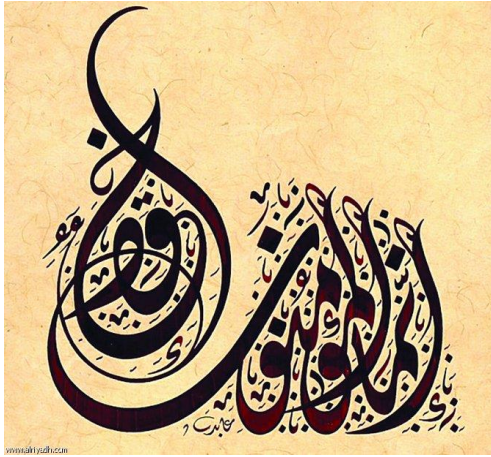 إنما المؤمنون إخوة
www.alriyadh.com